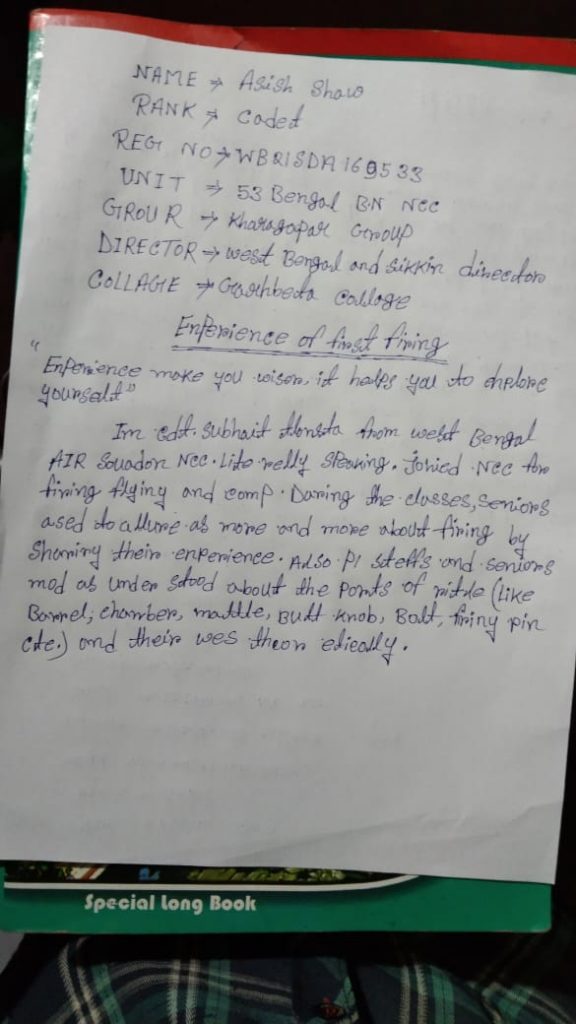 NAME → Asish Shaw
RANK → Cadet
REG NO → WB21SDA169533
UNIT → 53 Bengal BN NCC
GROUR → Kharagapar Group
DIRECTOR → west Bengal and Sikkin director
COLLAGE → Garhbeta Collage
Enperience of first firing
"Enperience make you wiser, it halps you to enplore
yourself"
Im cdt. Subhait from west Bengal
AIR Squadon NCC. Lite relly Speaking. Johied NCC for
firing flying and comp. Daring the classes, Seniors
ased to allure as more and more about firing by
Sharing their enperience. Also PI Steffs and seniors
mod as under stood about the ponts of ritde (Like
Barrel, chamber, mattle, Butt knob, Bolt, firiny pin
cte.) and their wes theor etically.
Special Long Book